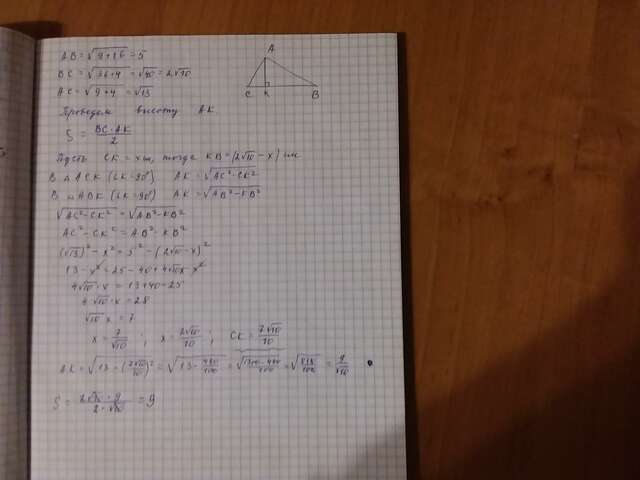 AB = √(9+16) = 5
BC = √(36+4) = √40 = 2√10
AC = √(9+4) = √13
A
C K B
Проведем высоту AK.
S = BC·AK/2
Пусть CK = x см, тогда KB = (2√10 − x) см
В △ACK (∠K=90°) AK = √(AC²−CK²)
В △ABK (∠K=90°) AK = √(AB²−KB²)
√(AC²−CK²) = √(AB²−KB²)
AC²−CK² = AB²−KB²
(√13)² − x² = 5² − (2√10−x)²
13 − x² = 25 − 40 + 4√10x − x²
4√10·x = 13+40−25
4√10·x = 28
√10 x = 7
x = 7/√10 ; x = 7√10/10 ; CK = 7√10/10
AK = √(13 − (7√10/10)²) = √(13 − 490/100) = √((1300−490)/100) = √(810/100) = 9/√10
S = 2√10·9/(2·√10) = 9